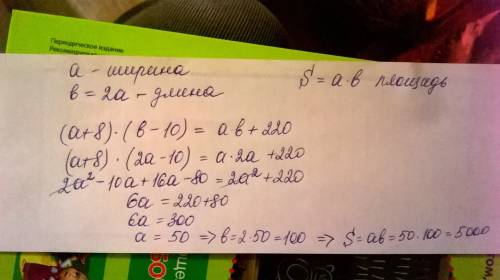 Периодическое издание
a - ширина
в = 2a - длина
S = a·в площадь
(a+8)·(в-10) = a·в+220
(a+8)·(2a-10) = a·2a+220
2a²-10a+16a-80 = 2a²+220
6a = 220+80
6a = 300
a = 50 => в=2·50=100 => S=aв=50·100=5000